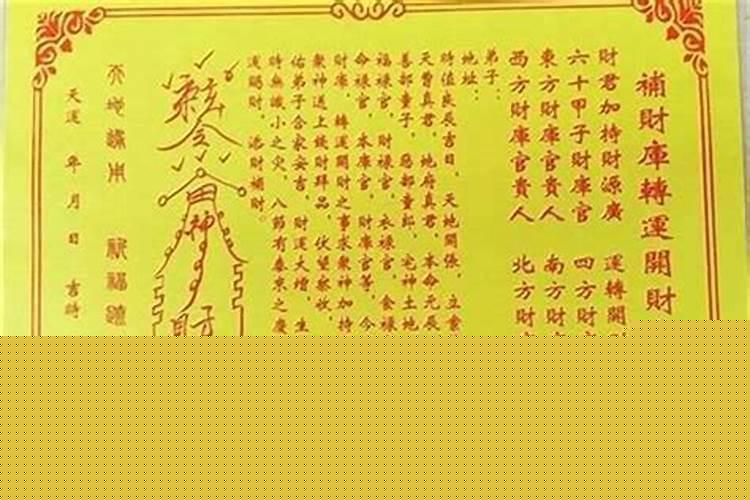 補財庫轉運開財
財君加持財源廣 運轉開
六十甲子財庫官 四方財
東方財庫官貴人 南方財
西方財庫官貴人 北方財
弟子：
地址：
時值良辰吉日，天地開張，立業
天曹真君，地府真君，本命元辰
善部童子，惡部童郎，宅神土地
福祿官，財祿官，衣祿官，食祿
命祿官，本庫官，財庫官等，今
財庫，轉運開財之事求眾神加持
眾神送上錢財拜品，伏望察收，
佑弟子合家安吉，財運大增，生
時無讖小之災，八節有泰京之慶
添財補財。
天運 年 月 日 吉時